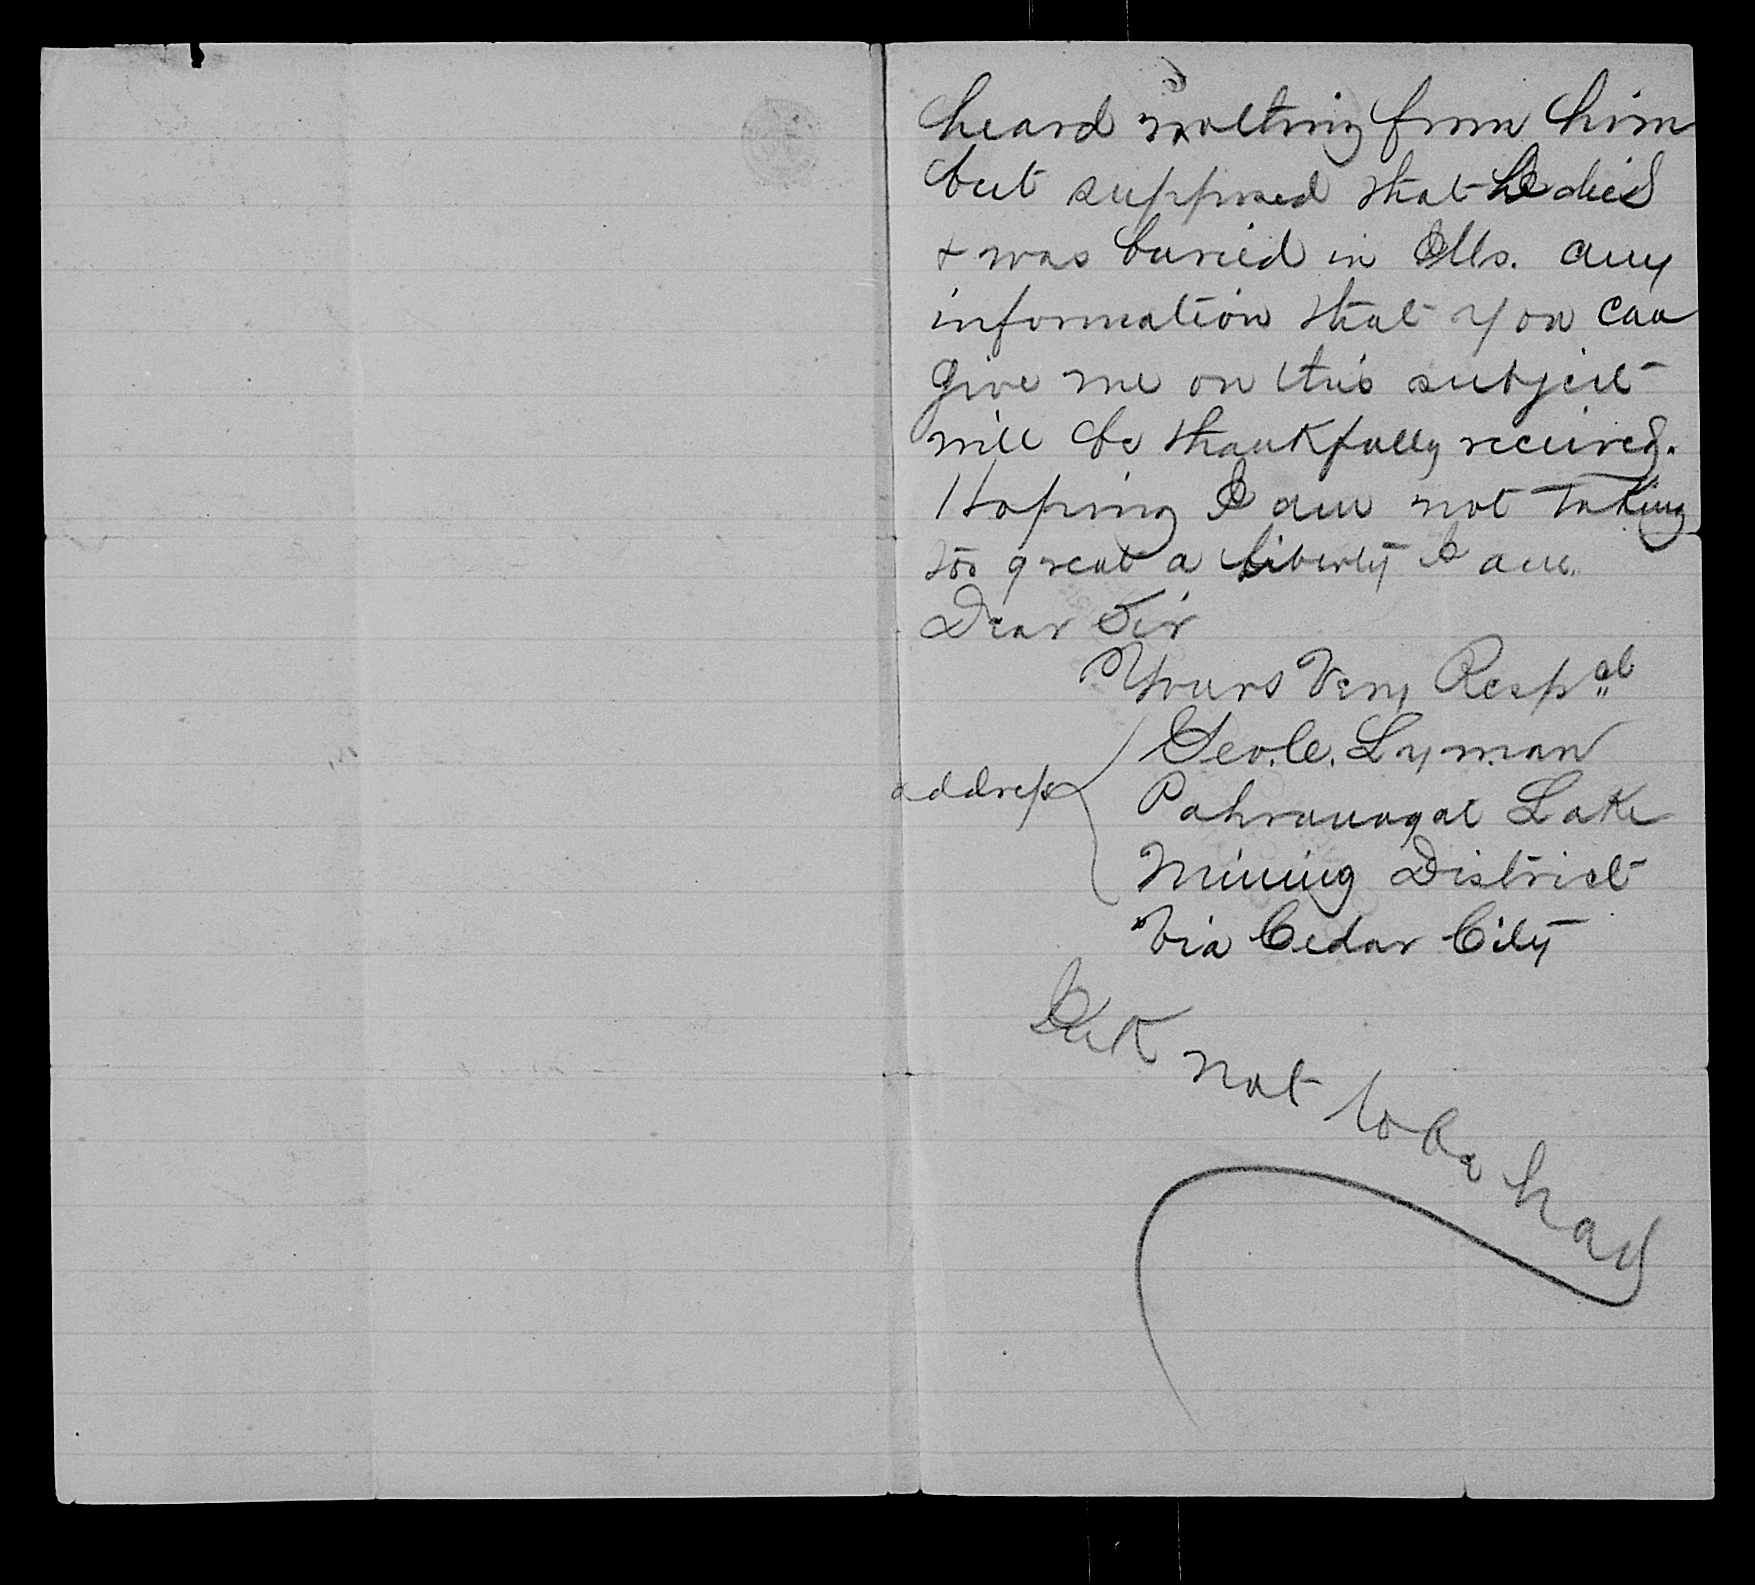 heard nothing from him
but supposed that he died
& was buried in Ills. any
information that you can
give me on this subject
will be thankfully received.
Hoping I am not taking
too great a liberty I am.
Dear Sir
Yours Very Resp
Geo. C. Lyman
address
Pahranagat Lake
Mining District
Via Cedar City
Ink not to be had